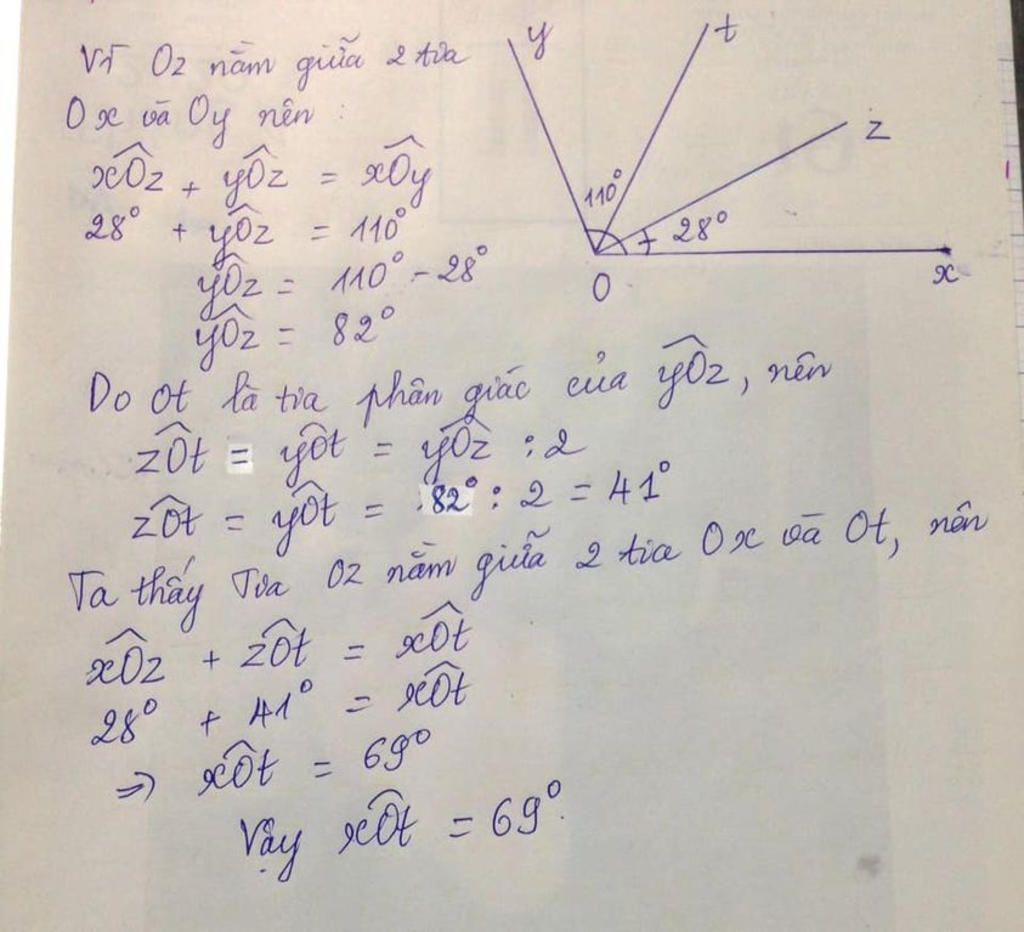 Vì Oz nằm giữa 2 tia
Ox và Oy nên :
xÔz + yÔz = xÔy
28° + yÔz = 110°
yÔz = 110° - 28°
yÔz = 82°
y
t
z
110°
28°
O
x
Do Ot là tia phân giác của yÔz, nên
zÔt = yÔt = yÔz : 2
zÔt = yÔt = 82° : 2 = 41°
Ta thấy Tia Oz nằm giữa 2 tia Ox và Ot, nên
xÔz + zÔt = xÔt
28° + 41° = xÔt
⇒ xÔt = 69°
Vậy xÔt = 69°.